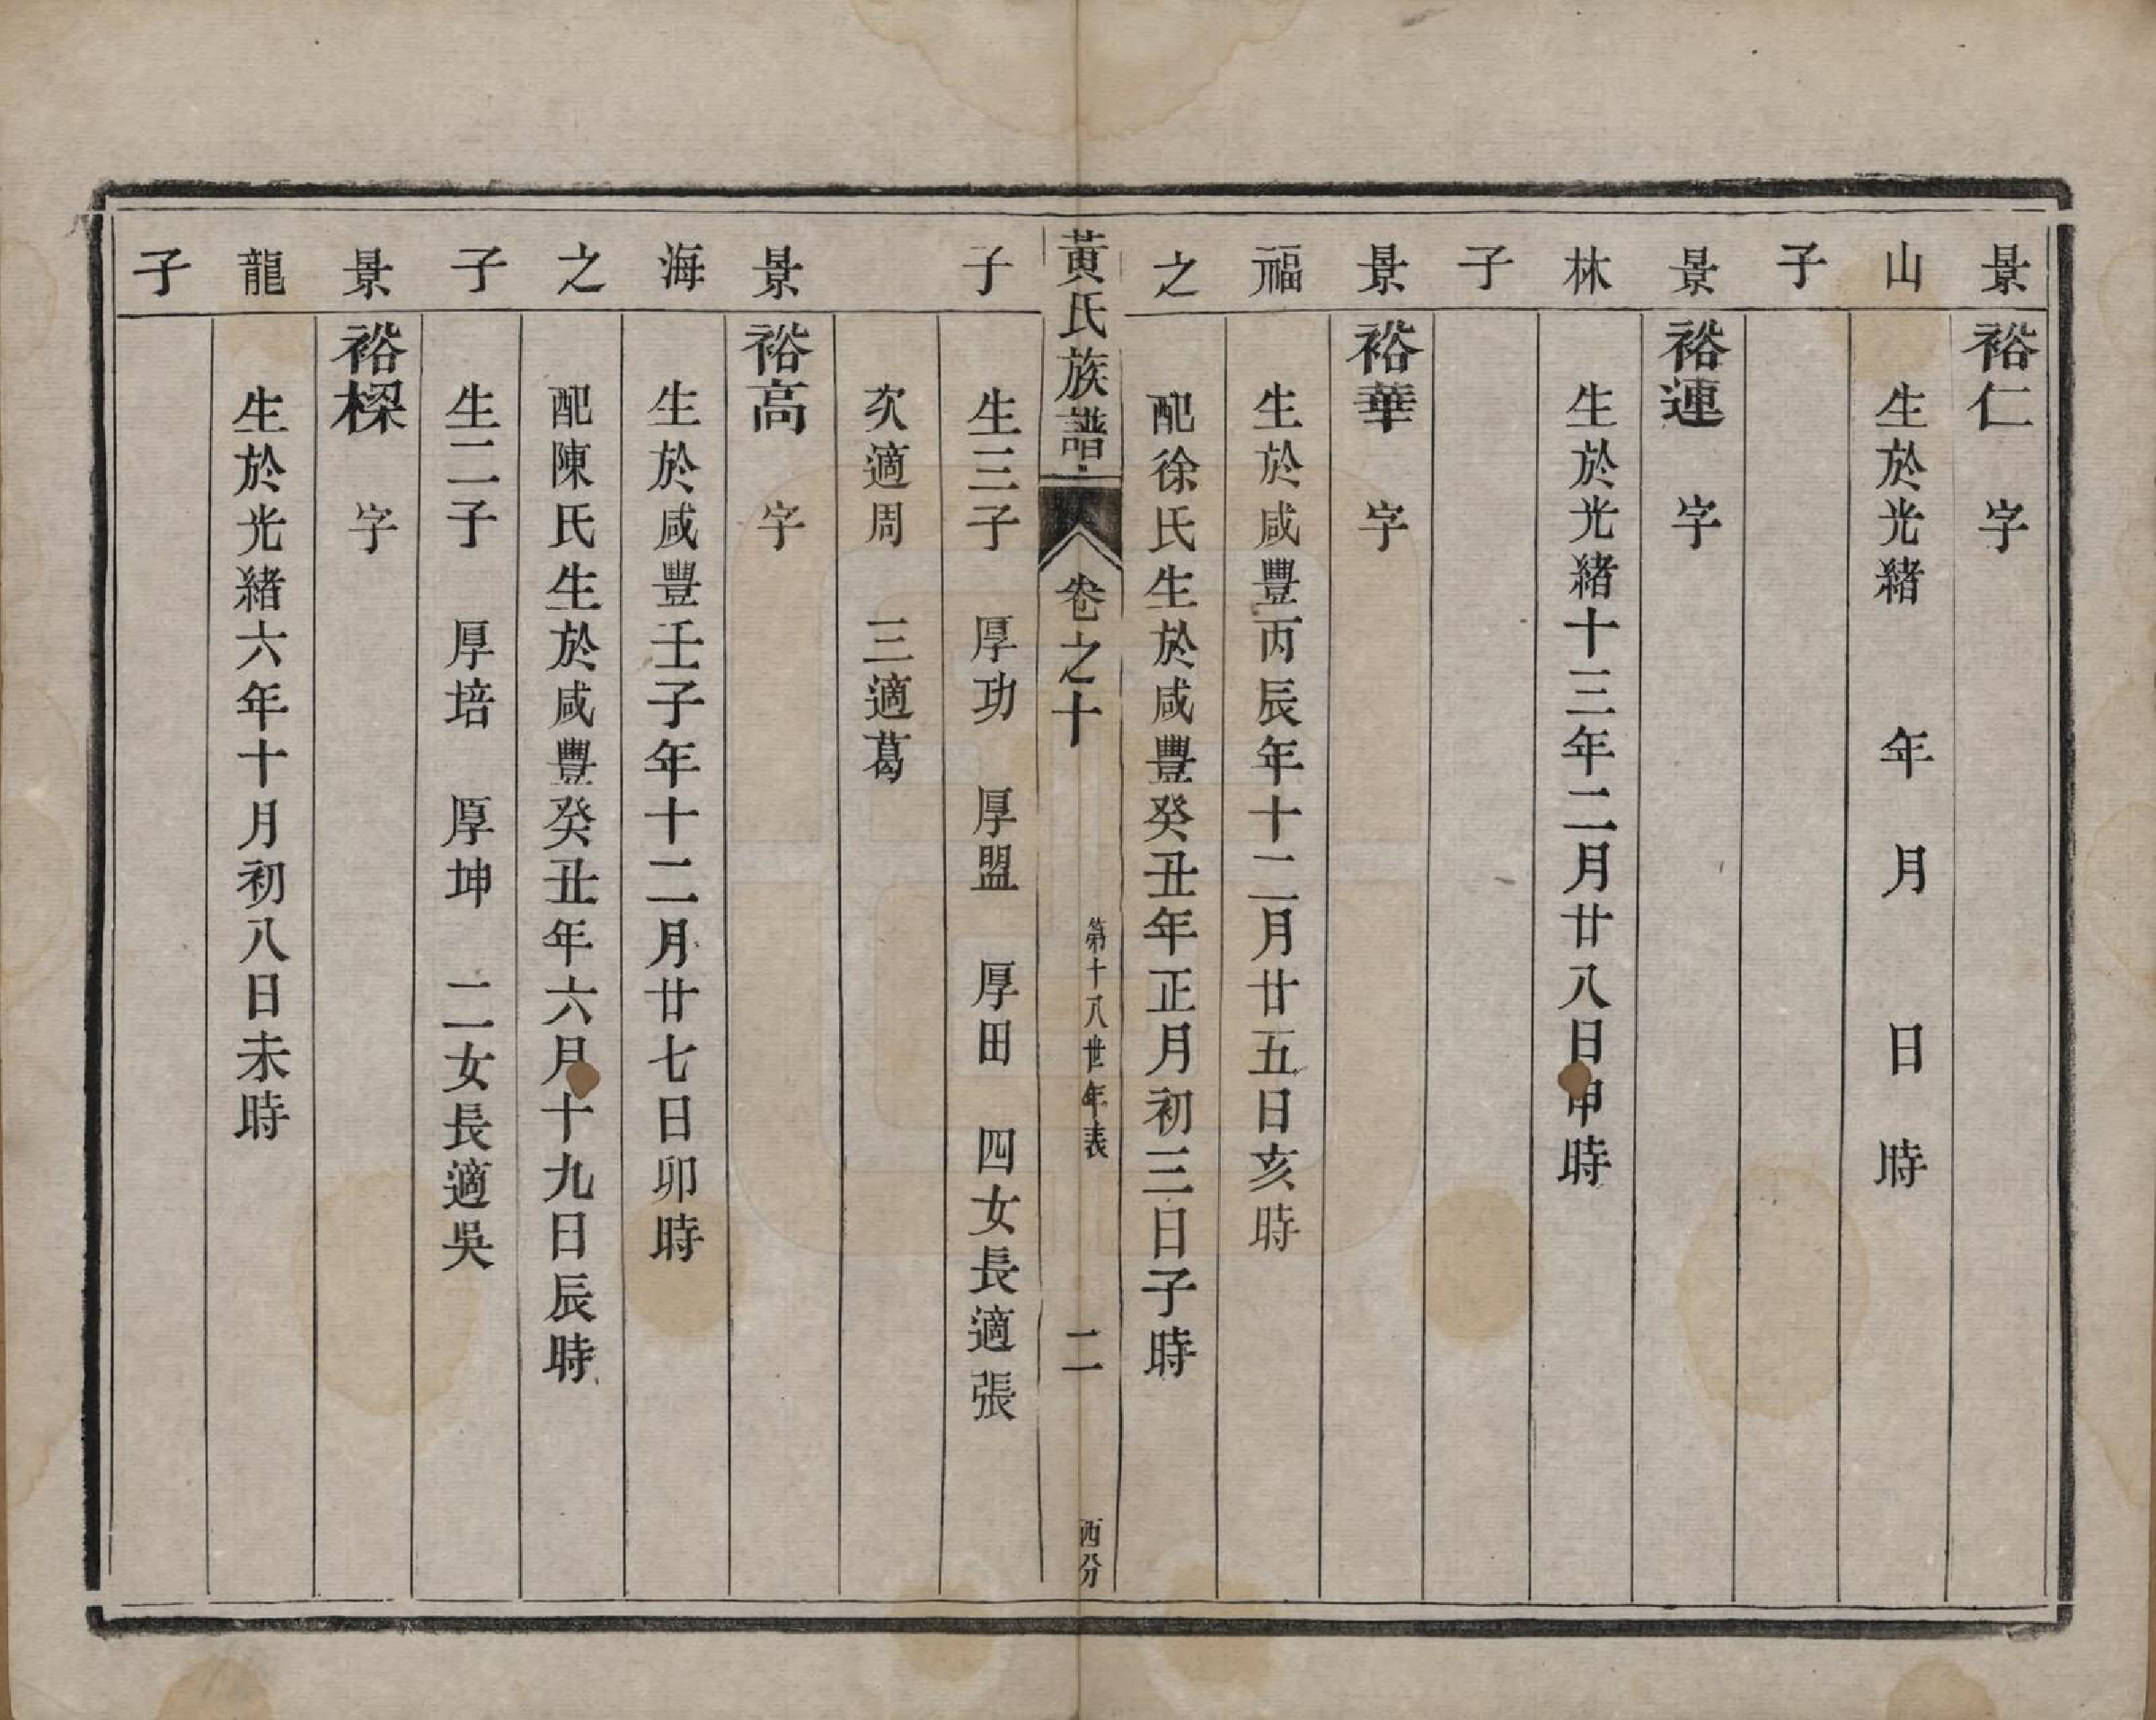 景　裕仁　字
山　生於光緒　年　月　日　時
子
景　裕連　字
林　生於光緒十三年二月廿八日申時
子
景　裕華　字
福　生於咸豐丙辰年十二月廿五日亥時
之　配徐氏生於咸豐癸丑年正月初三日子時
黃氏族譜　卷之十　第十八世年表　二　西分
子　生三子　厚功　厚盟　厚田　四女長適張
次適周　三適葛
景　裕高　字
海　生於咸豐壬子年十二月廿七日卯時
之　配陳氏生於咸豐癸丑年六月十九日辰時
子　生二子　厚培　厚坤　二女長適吳
景　裕樑　字
龍　生於光緒六年十月初八日未時
子